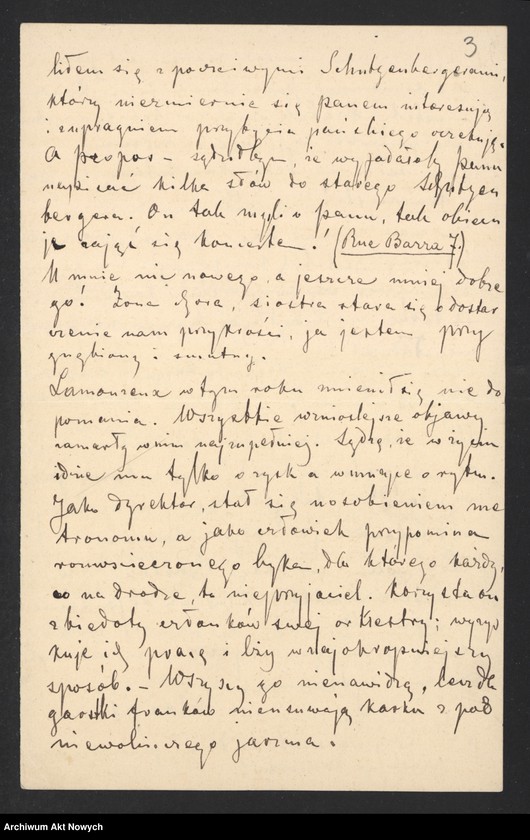 3
liłem się z poczciwymi Schutzenbergerami,
którzy niezmiernie się panem interesują
i z upragnieniem przybycia pańskiego oczekują.
A propos – sądziłbym, że wypadałoby panu
napisać kilka słów do starego Schutzen
bergera. On tak myśli o panu, tak obiecu
je zająć się koncertem! (Rue Barra 7.)
U mnie nic nowego, a jeszcze mniej dobre
go! Żona chora, siostra stara się o dostar
czenie nam przykrości, ja jestem przy
gnębiony i smutny.
Lamoureux w tym roku zmienił się nie do
poznania. Wszystkie wznioślejsze objawy
zamarły w nim najzupełniej. Sądzę, że w życiu
idzie mu tylko o zysk a w muzyce o rytm.
Jako dyrektor, stał się uosobieniem me
tronomu, a jako człowiek przypomina
rozwścieczonego byka, dla którego każdy,
co na drodze, to nieprzyjaciel. Korzysta on
z biedoty członków swej orkiestry; wyzys
kuje ich pracę i łzy w najokropniejszy
sposób. – Wszyscy go nienawidzą, lecz dla
garstki franków nie usuwają karku z pod
niewolniczego jarzma.
Archiwum Akt Nowych